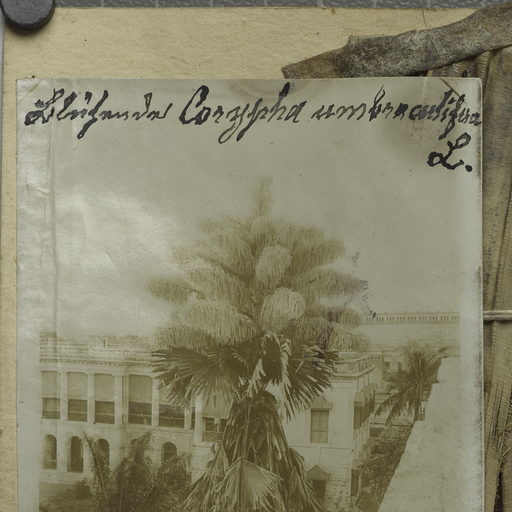 Blühende Corypha umbraculifera
L.